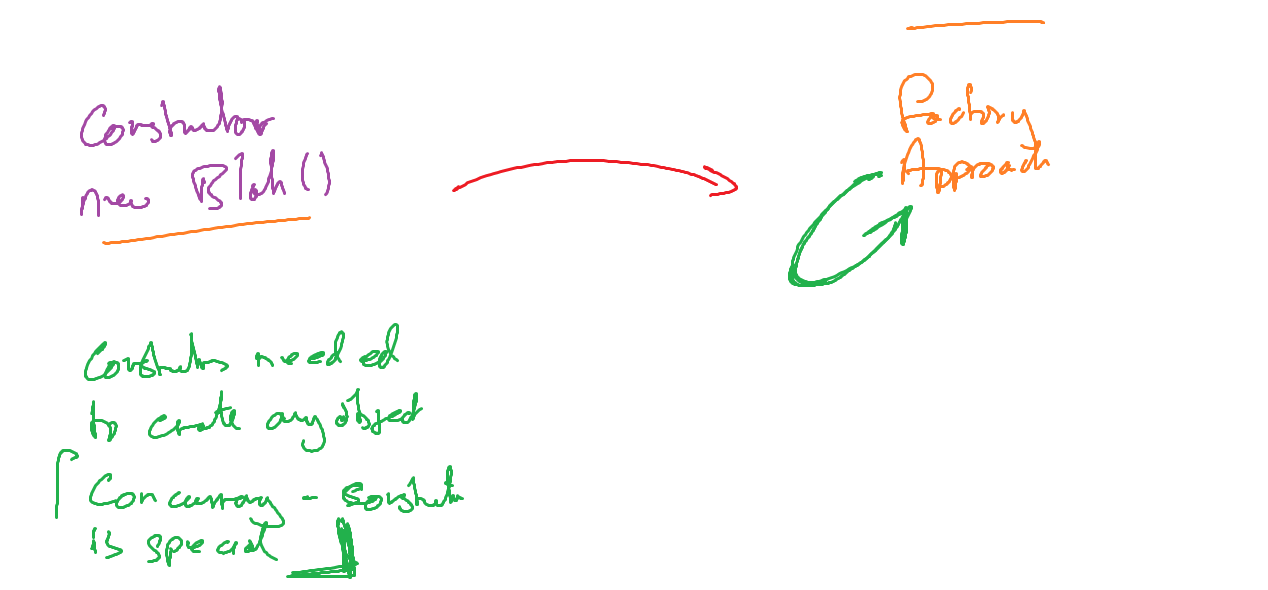 Constructor
new Blah()
Factory
Approach
Constructors needed
to create any object
Concurrency - constructor
is special